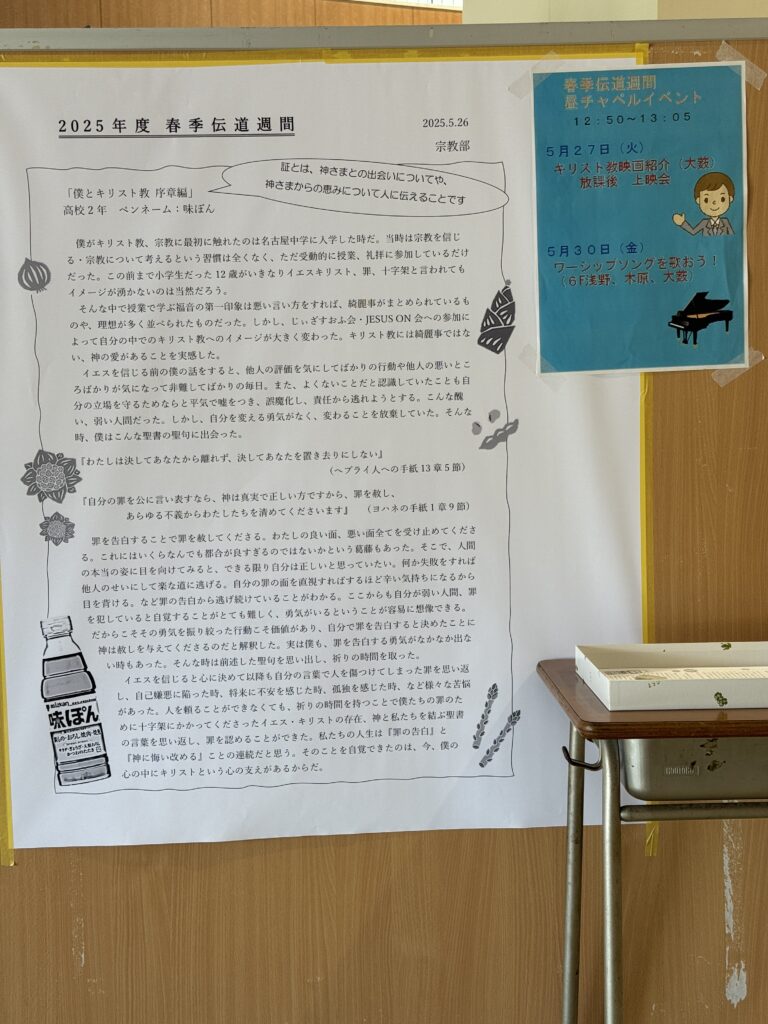 2025年度 春季伝道週間
2025.5.26
宗教部
証とは、神さまとの出会いについてや、
神さまからの恵みについて人に伝えることです
「僕とキリスト教 序章編」
高校2年 ペンネーム：味ぽん
僕がキリスト教、宗教に最初に触れたのは名古屋中学に入学した時だ。当時は宗教を信じ
る・宗教について考えるという習慣は全くなく、ただ受動的に授業、礼拝に参加しているだけ
だった。この前まで小学生だった12歳がいきなりイエスキリスト、罪、十字架と言われても
イメージが湧かないのは当然だろう。
そんな中で授業で学ぶ福音の第一印象は悪い言い方をすれば、綺麗事がまとめられているも
のや、理想が多く並べられたものだった。しかし、じぃざすおふ会・JESUS ON会への参加に
よって自分の中でのキリスト教へのイメージが大きく変わった。キリスト教には綺麗事ではな
い、神の愛があることを実感した。
イエスを信じる前の僕の話をすると、他人の評価を気にしてばかりの行動や他人の悪いとこ
ろばかりが気になって非難してばかりの毎日。また、よくないことだと認識していたことも自
分の立場を守るためならと平気で嘘をつき、誤魔化し、責任から逃れようとする。こんな醜
い、弱い人間だった。しかし、自分を変える勇気がなく、変わることを放棄していた。そんな
時、僕はこんな聖書の聖句に出会った。
『わたしは決してあなたから離れず、決してあなたを置き去りにしない』
（ヘブライ人への手紙13章5節）
『自分の罪を公に言い表すなら、神は真実で正しい方ですから、罪を赦し、
あらゆる不義からわたしたちを清めてくださいます』 （ヨハネの手紙1章9節）
罪を告白することで罪を赦してくださる。わたしの良い面、悪い面全てを受け止めてくださ
る。これにはいくらなんでも都合が良すぎるのではないかという葛藤もあった。そこで、人間
の本当の姿に目を向けてみると、できる限り自分は正しいと思っていたい。何か失敗をすれば
他人のせいにして楽な道に逃げる。自分の罪の面を直視すればするほど辛い気持ちになるから
目を背ける。など罪の告白から逃げ続けていることがわかる。ここからも自分が弱い人間、罪
を犯していると自覚することがとても難しく、勇気がいるということが容易に想像できる。
だからこそその勇気を振り絞った行動こそ価値があり、自分で罪を告白すると決めたことに
神は赦しを与えてくださるのだと解釈した。実は僕も、罪を告白する勇気がなかなか出な
い時もあった。そんな時は前述した聖句を思い出し、祈りの時間を取った。
イエスを信じると心に決めて以降も自分の言葉で人を傷つけてしまった罪を思い返
し、自己嫌悪に陥った時、将来に不安を感じた時、孤独を感じた時、など様々な苦悩
があった。人を頼ることができなくても、祈りの時間を持つことで僕たちの罪のた
めに十字架にかかってくださったイエス・キリストの存在、神と私たちを結ぶ聖書
の言葉を思い返し、罪を認めることができた。私たちの人生は『罪の告白』と
『神に悔い改める』ことの連続だと思う。そのことを自覚できたのは、今、僕の
心の中にキリストという心の支えがあるからだ。
mizkan
味ぽん
春季伝道週間
昼チャペルイベント
12：50～13：05
5月27日（火）
キリスト教映画紹介（大薮）
放課後 上映会
5月30日（金）
ワーシップソングを歌おう！
（6F浅野、木原、大薮）